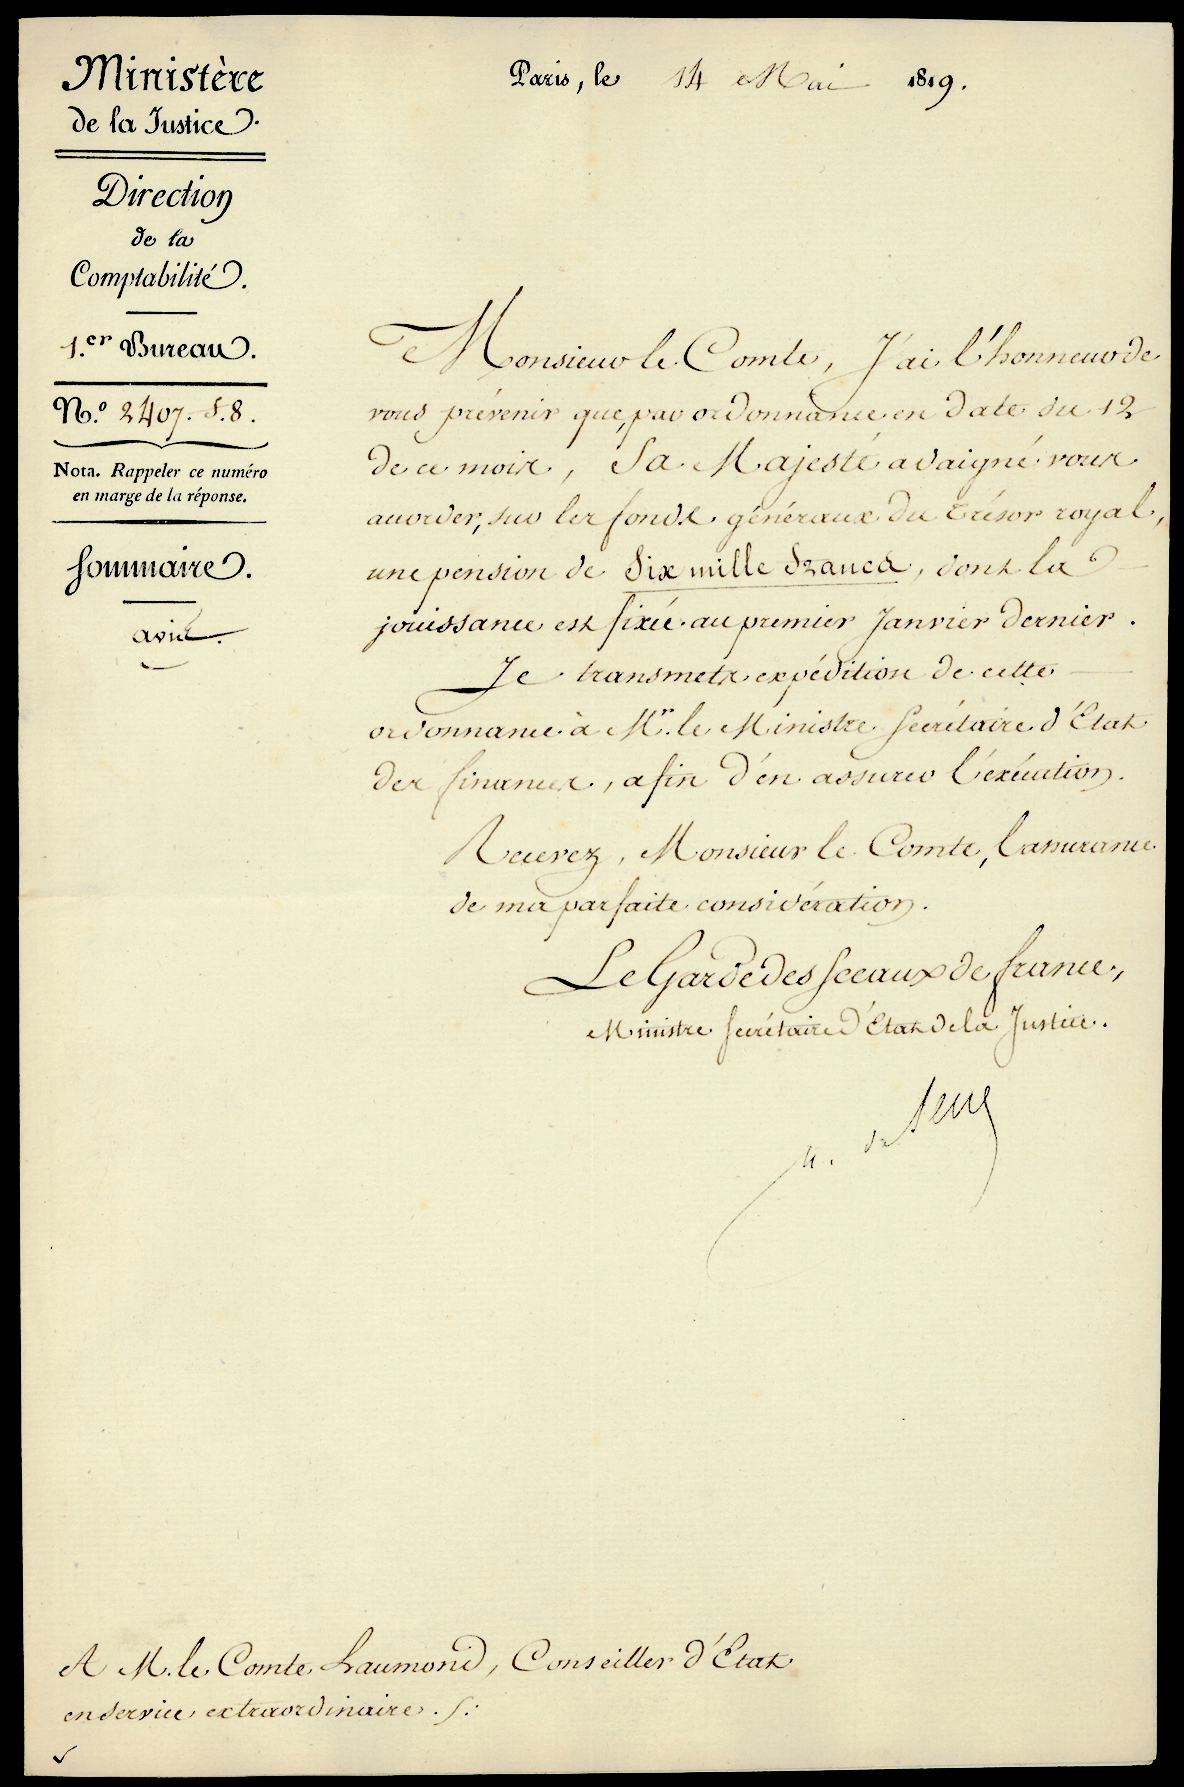 Ministère
de la Justice.
Direction
de la
Comptabilité.
1.er Bureau.
N.o 2407. S. 8.
Nota. Rappeler ce numéro
en marge de la réponse.
Sommaire.
avis.
Paris, le 14 Mai 1819.
Monsieur le Comte, J'ai l'honneur de
vous prévenir que, par ordonnance en date du 12
de ce mois, Sa Majesté a daigné vous
accorder, sur les fonds généraux du trésor royal,
une pension de Six mille Francs, dont la
jouissance est fixée au premier Janvier dernier.
Je transmets expédition de cette
ordonnance à Mr. le Ministre Secrétaire d'Etat
des finances, afin d'en assurer l'exécution.
Recevez, Monsieur le Comte, l'assurance
de ma parfaite considération.
Le Garde des Sceaux de france,
Ministre Secrétaire d'Etat de la Justice.
h. de Serre
A M. le Comte Laumond, Conseiller d'Etat
en service extraordinaire. S: